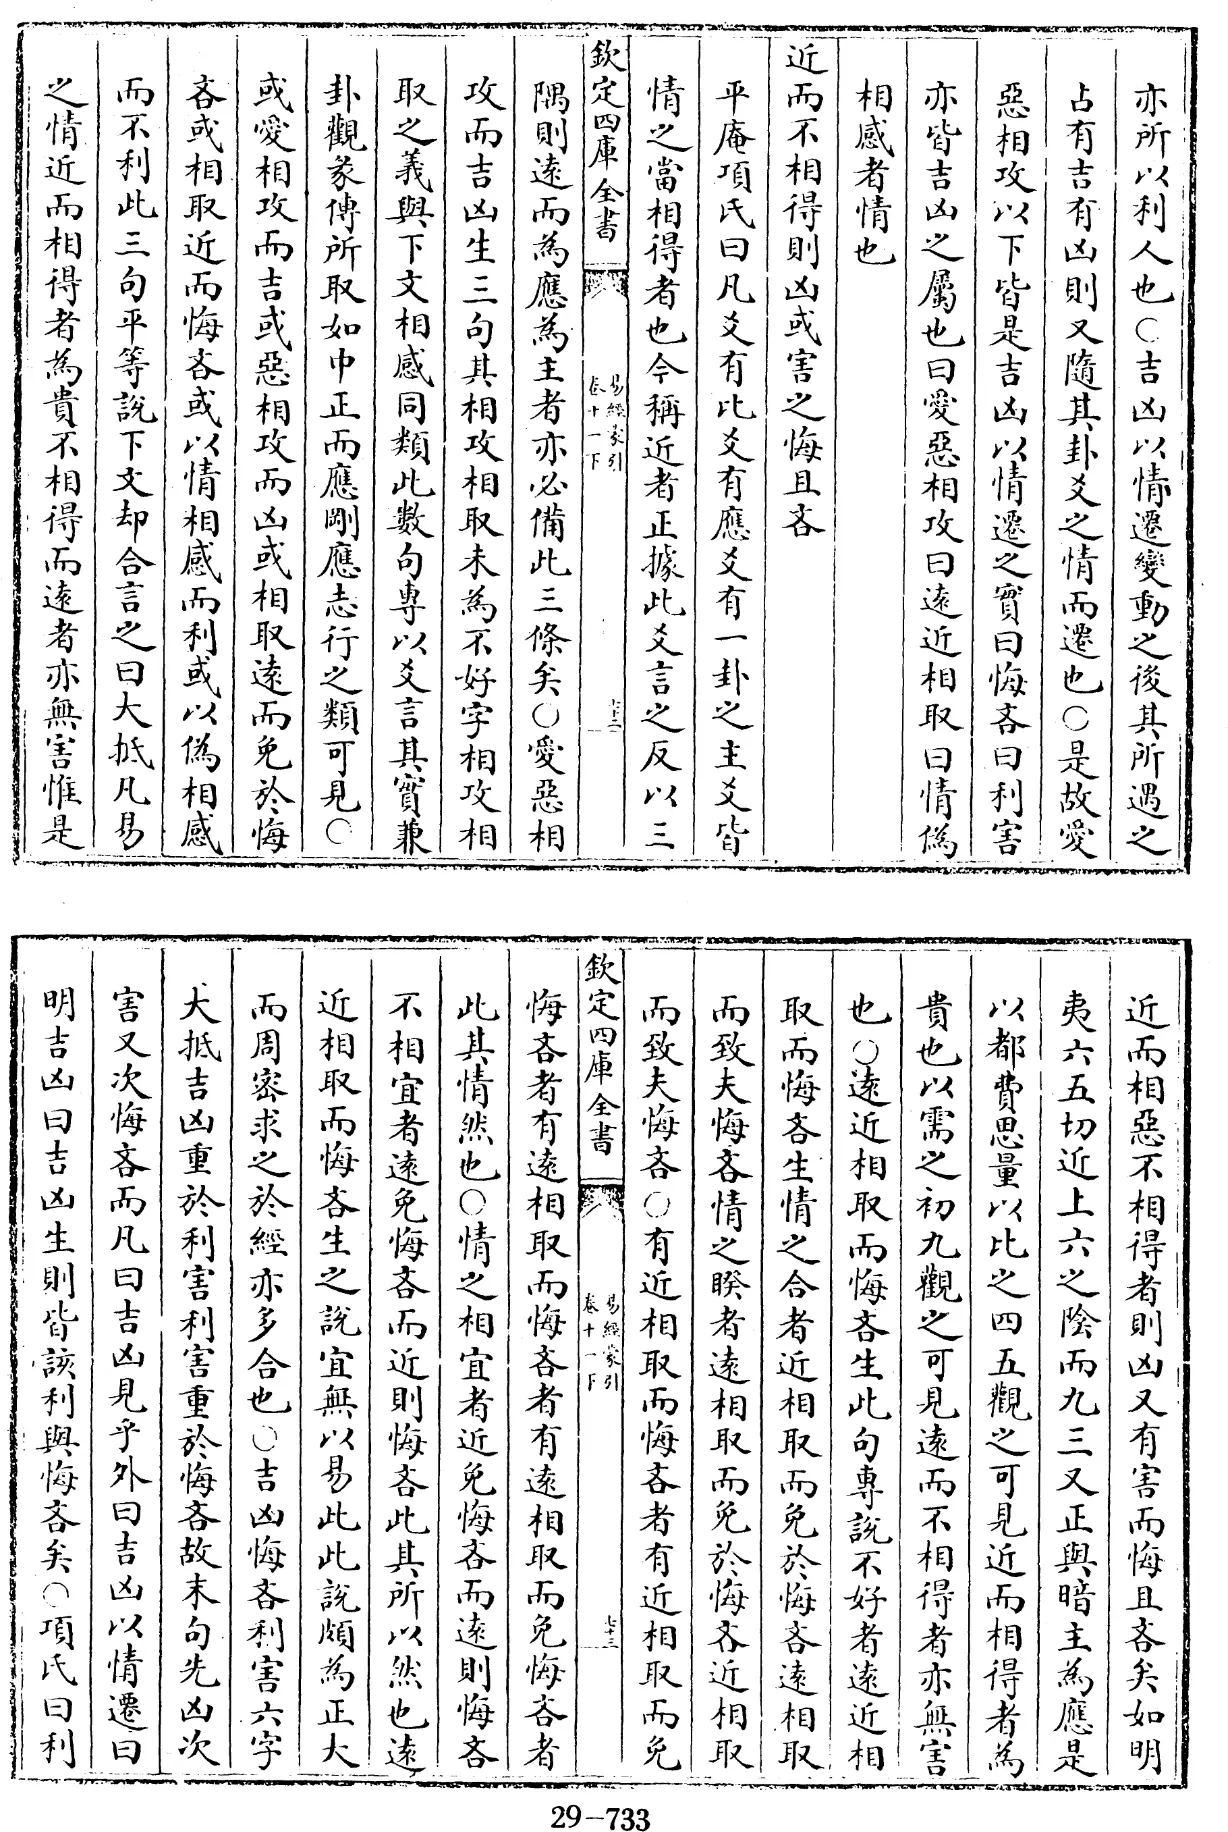 亦所以利人也○吉凶以情遷變動之後其所遇之
占有吉有凶則又隨其卦爻之情而遷也○是故愛
惡相攻以下皆是吉凶以情遷之實曰悔吝曰利害
亦皆吉凶之屬也曰愛惡相攻曰遠近相取曰情偽
相感者情也
近而不相得則凶或害之悔且吝
平庵項氏曰凡爻有比爻有應爻有一卦之主爻皆
情之當相得者也今稱近者正據此爻言之反以三
欽定四庫全書
易經蒙引
卷十一下
七十二
隅則遠而為應為主者亦必備此三條矣○愛惡相
攻而吉凶生三句其相攻相取未為不好字相攻相
取之義與下文相感同類此數句專以爻言其實兼
卦觀彖傳所取如中正而應剛應志行之類可見○
或愛相攻而吉或惡相攻而凶或相取遠而免於悔
吝或相取近而悔吝或以情相感而利或以偽相感
而不利此三句平等說下文却合言之曰大抵凡易
之情近而相得者為貴不相得而遠者亦無害惟是
近而相惡不相得者則凶又有害而悔且吝矣如明
夷六五切近上六之陰而九三又正與暗主為應是
以都費思量以比之四五觀之可見近而相得者為
貴也以需之初九觀之可見遠而不相得者亦無害
也○遠近相取而悔吝生此句專說不好者遠近相
取而悔吝生情之合者近相取而免於悔吝遠相取
而致夫悔吝情之睽者遠相取而免於悔吝近相取
而致夫悔吝○有近相取而悔吝者有近相取而免
欽定四庫全書
易經蒙引
卷十一下
七十三
悔吝者有遠相取而悔吝者有遠相取而免悔吝者
此其情然也○情之相宜者近免悔吝而遠則悔吝
不相宜者遠免悔吝而近則悔吝此其所以然也遠
近相取而悔吝生之說宜無以易此此說頗為正大
而周密求之於經亦多合也○吉凶悔吝利害六字
大抵吉凶重於利害利害重於悔吝故末句先凶次
害又次悔吝而凡曰吉凶見乎外曰吉凶以情遷曰
明吉凶曰吉凶生則皆該利與悔吝矣○項氏曰利
29-733